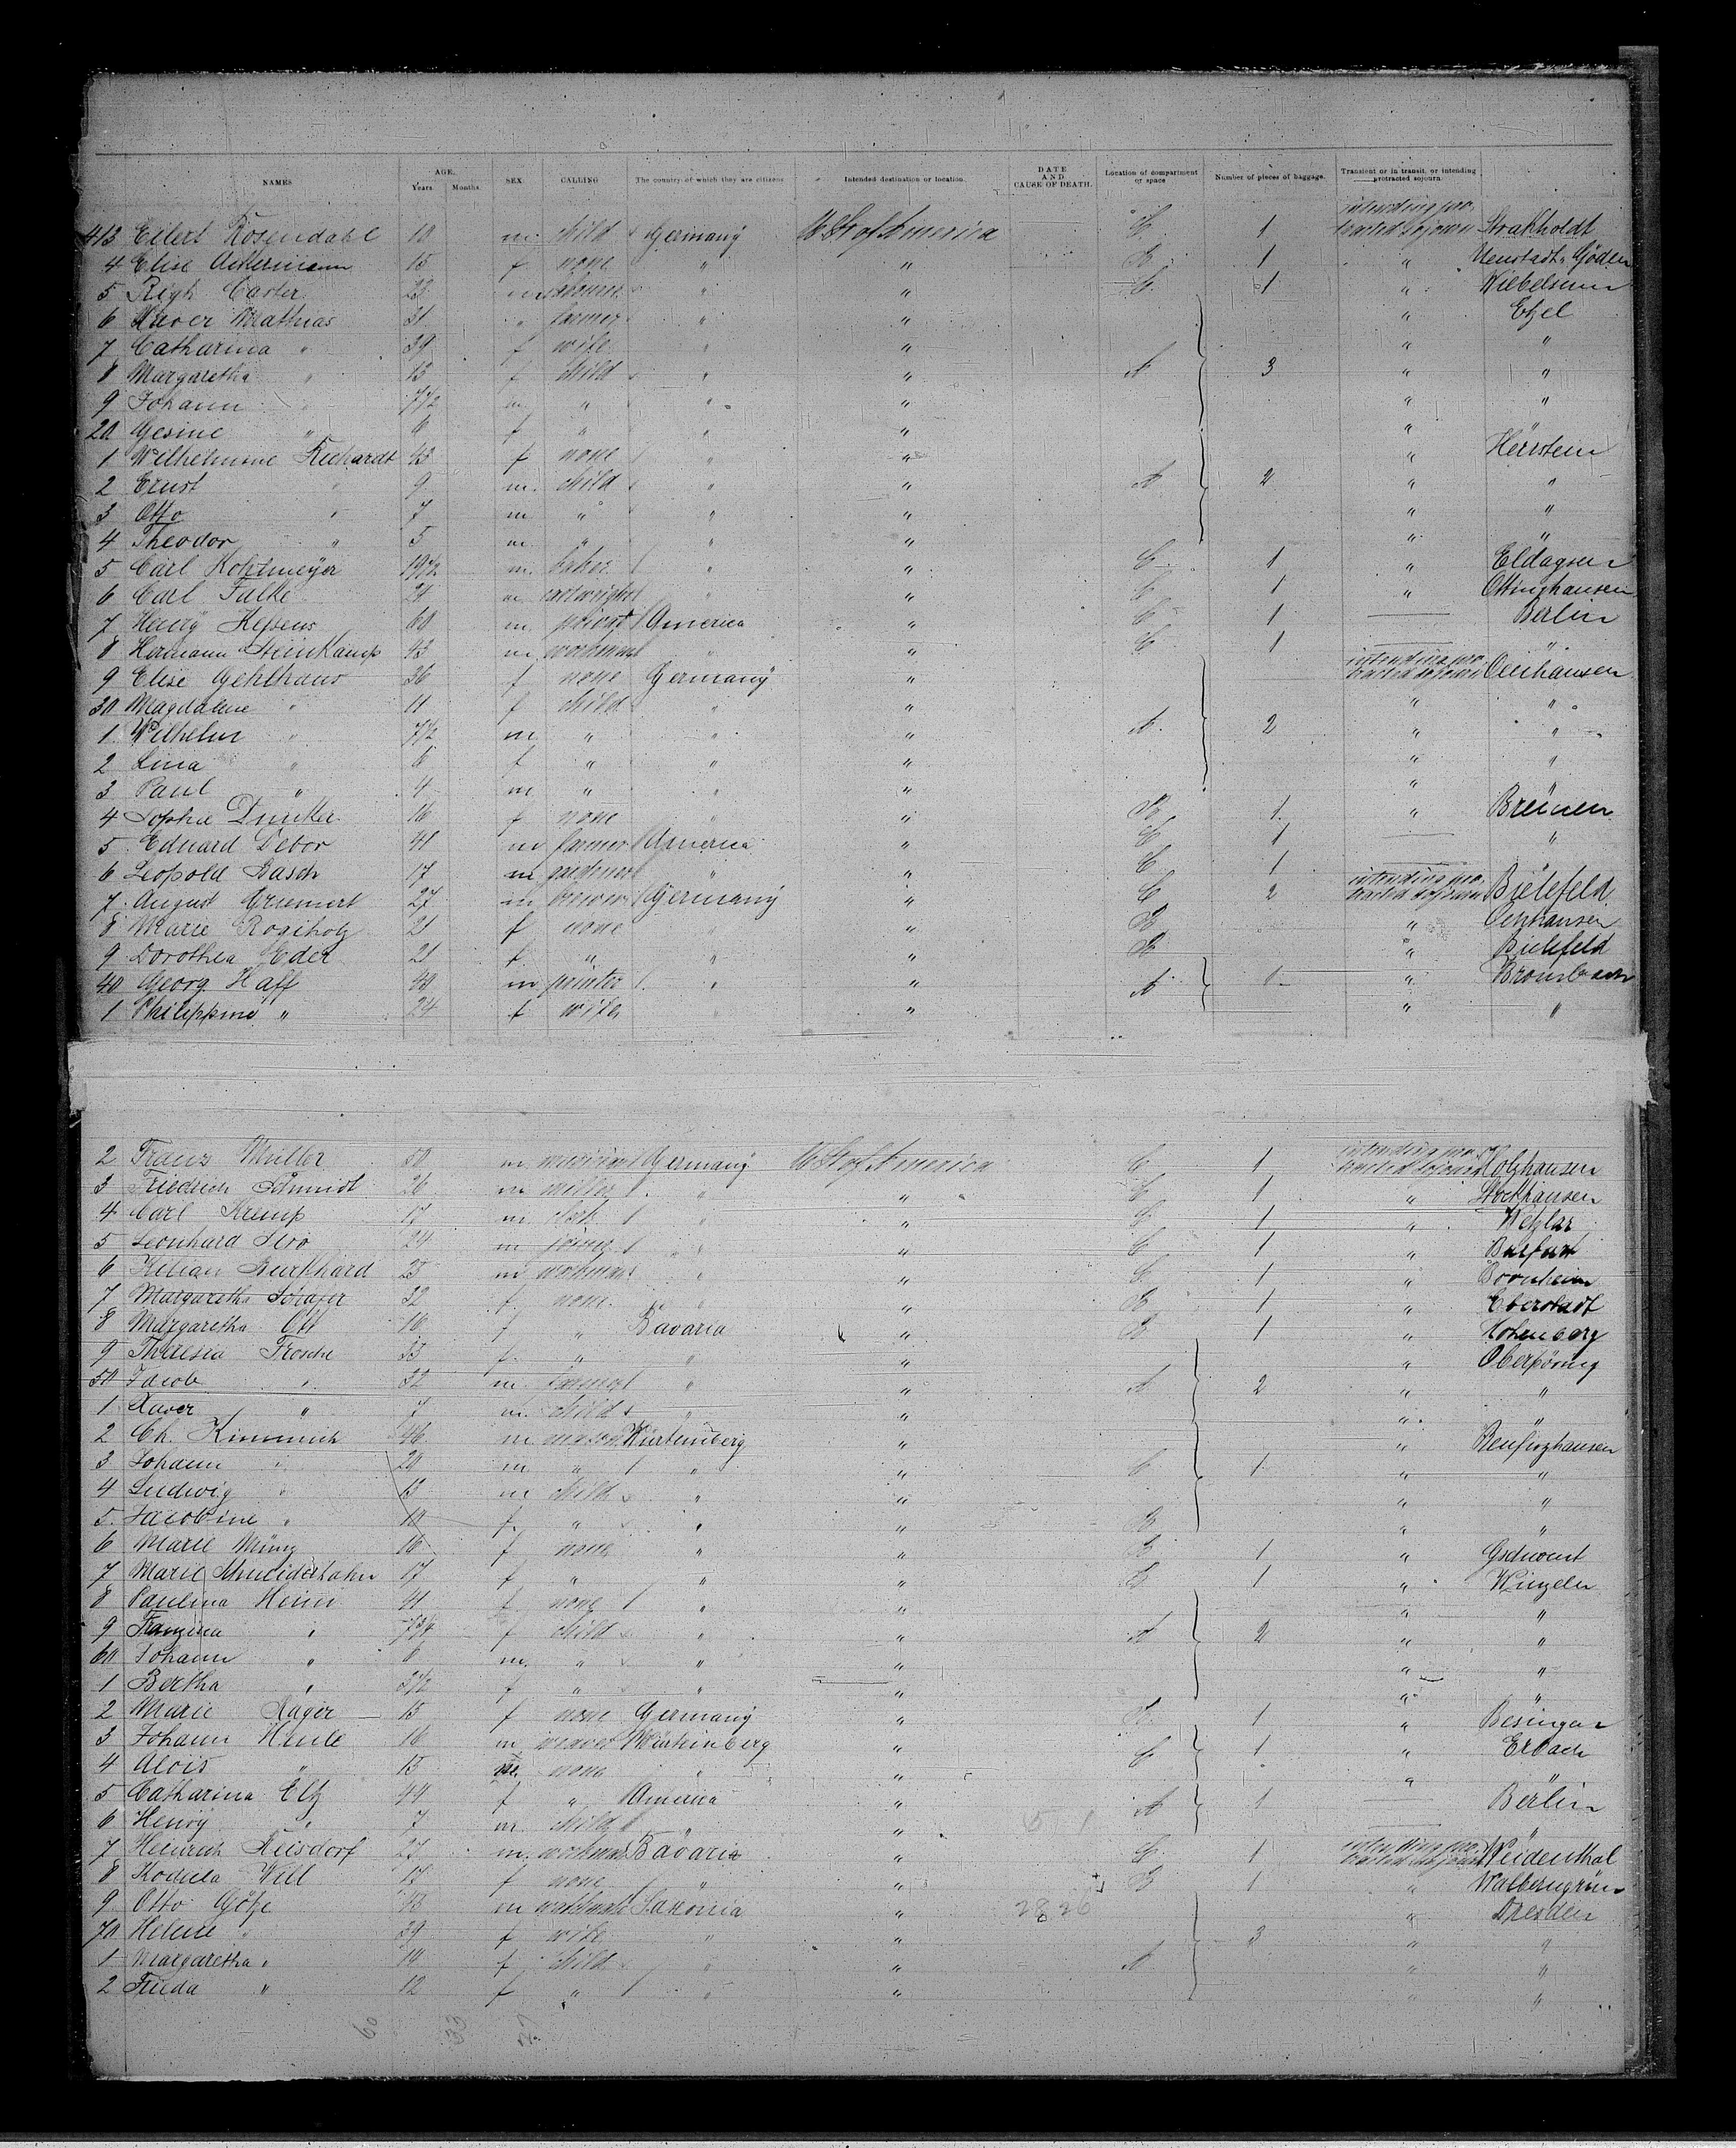 NAMES AGE. Years. Months. SEX. CALLING The country of which they are citizens. Intended destination or location. DATE AND CAUSE OF DEATH. Location of compartment or space Number of pieces of baggage. Transient or in transit, or intending protracted sojourn.
413 Eilert Rosendahl 10 m. child Germany U St of America C. 1 intending protracted sojourn Strakholdt
4 Elise Ackermann 15 f none " " B 1 "
5 Carter 23 " " C. 1 "
6 Mathias 31 " farmer " " " Etzel
7 Catharina " 39 f wife " " " "
8 Margaretha " 15 f child " " A 3 " "
9 Johann " 7 1/2 m " " " " "
20 Gesine " 6 f " " " "
1 Wilhelmine 43 f none " " " Herrstein
2 Ernst " 9 m. child " " A 2 " "
3 Otto " 7 m " " " " "
4 Theodor " 5 m " " " " "
5 Carl Kohlmeyer 19 1/2 m. baker " " C. 1 " Eldagsen
6 Carl Falke 24 m cartwright " " C 1 "
7 Henry 60 m. privat America " C 1 — Berlin
8 Hermann Steinkamp 43 m workman " " C 1 — "
9 Elise Gehlhaus 36 f none Germany " intending protracted sojourn
30 Magdalene " 11 f child " " " "
1 Wilhelm " 7 1/2 m " " " A 2 " "
2 Lina " 6 f " " " " "
3 Paul " 4 m " " " "
4 Sophie Dunker 16 f none " " B 1 " Bremen
5 Eduard Debor 41 m farmer America " C 1 — "
6 Leopold Rasch 17 m gardener " " C 1 —
7 August 27 m brewer Germany " C 2 intending protracted sojourn Bielefeld
8 Marie 21 f none " " B "
9 Dorothea Eder 21 f " " " B " Bielefeld
40 Georg Haff 49 m " " A 1 " Brombach
1 Philippine " 24 f wife " " " "
2 Franz Müller 50 m musician Germany U St of America C 1 intending protracted sojourn Holzhausen
3 Friedrich Schmidt 26 m miller " " C 1 " Stockhausen
4 Carl Kremp 17 m. clerk " " C 1 " Wetzlar
5 Leonhard 24 m joiner " " C 1 "
6 Kilian Burkhard 25 m workman " " C 1 " Bornheim
7 Margaretha 32 f. none " " B 1 " Eberstadt
8 Margaretha Ott 16 f " Bavaria " B 1 " Hohenberg
9 Theresia Frosch 33 f. " " " " Oberpöring
50 Jacob " 32 m. farmer " " A 2 " "
1 Xaver " 7 m. child " " " "
2 Ch. Kimmich 46 m mason Würtemberg " "
3 Johann " 20 m " " " C 1 " "
4 Ludwig " 13 m child " " " "
5. Jacobine " 10 f. " " " B " "
6 Marie Münz 16 f none " " B 1 "
7 Marie 17 f " " " B 1 " Winzeln
8 Paulina 41 f none " " " "
9 Franziska " 7 3/4 f child " " A 2 " "
60 Johann " 6 m. " " " " "
1 Bertha " 3 1/2 f " " " " "
2 Marie 15 f none Germany " B. 1 "
3 Johann Henle 16 m weaver Würtemberg " C 1 " Erbach
4 Alois " 15 m. none " " " "
5 Catharina Eltz 44 f " America " A 1 — Berlin
6 Henry " 7 m child " " "
7 Heinrich Reisdorf 27 m. workman Bavaria " C 1 intending protracted sojourn Weidenthal
8 Will 17 f none " " B 1 "
9 Otto Götze 43 m Saxonia " 2826 " Dresden
70 Helene " 39 f wife " " 3 " "
1 Margaretha " 14 f child " " A " "
2 Frieda " 12 f " " " " "
60 33 27